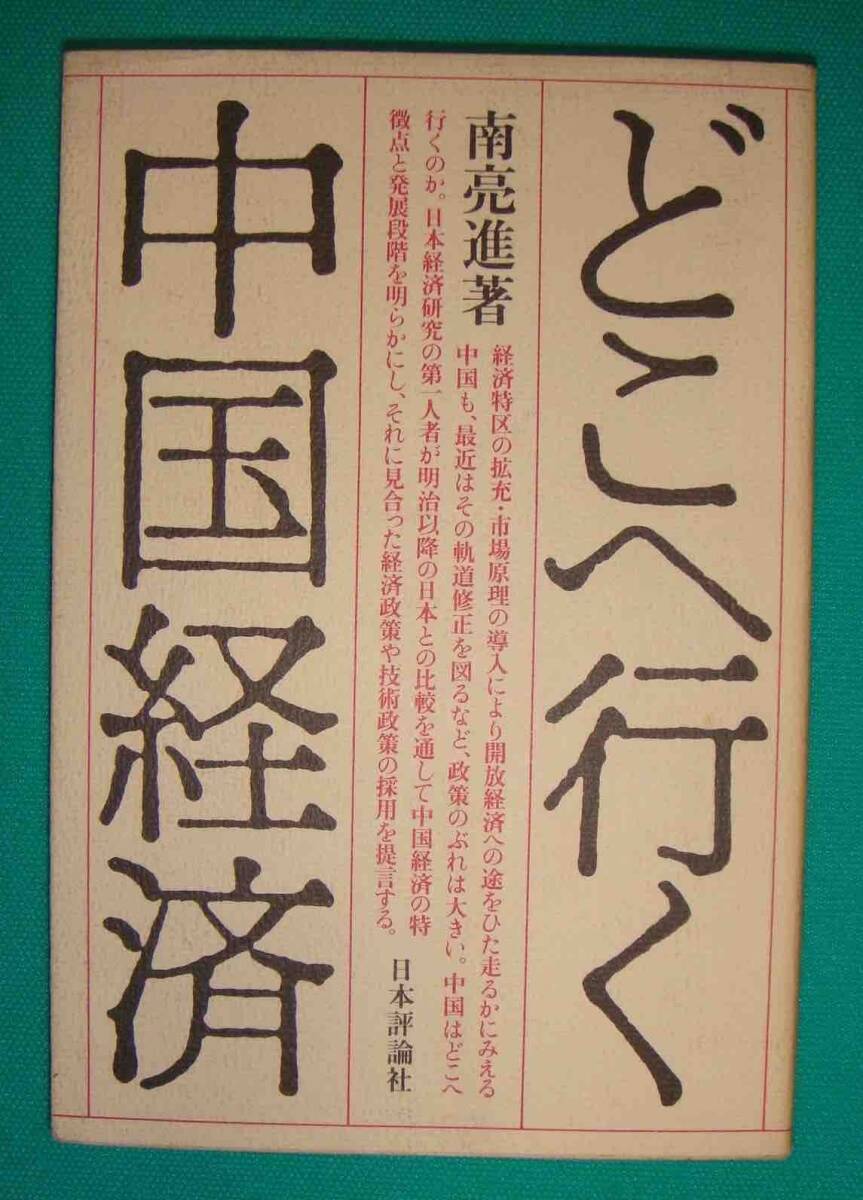 どこへ行く
南亮進著
経済特区の拡充・市場原理の導入により開放経済への途をひた走るかにみえる
中国も、最近はその軌道修正を図るなど、政策のぶれは大きい。中国はどこへ
行くのか。日本経済研究の第一人者が明治以降の日本との比較を通して中国経済の特
徴点と発展段階を明らかにし、それに見合った経済政策や技術政策の採用を提言する。
日本評論社
中国経済